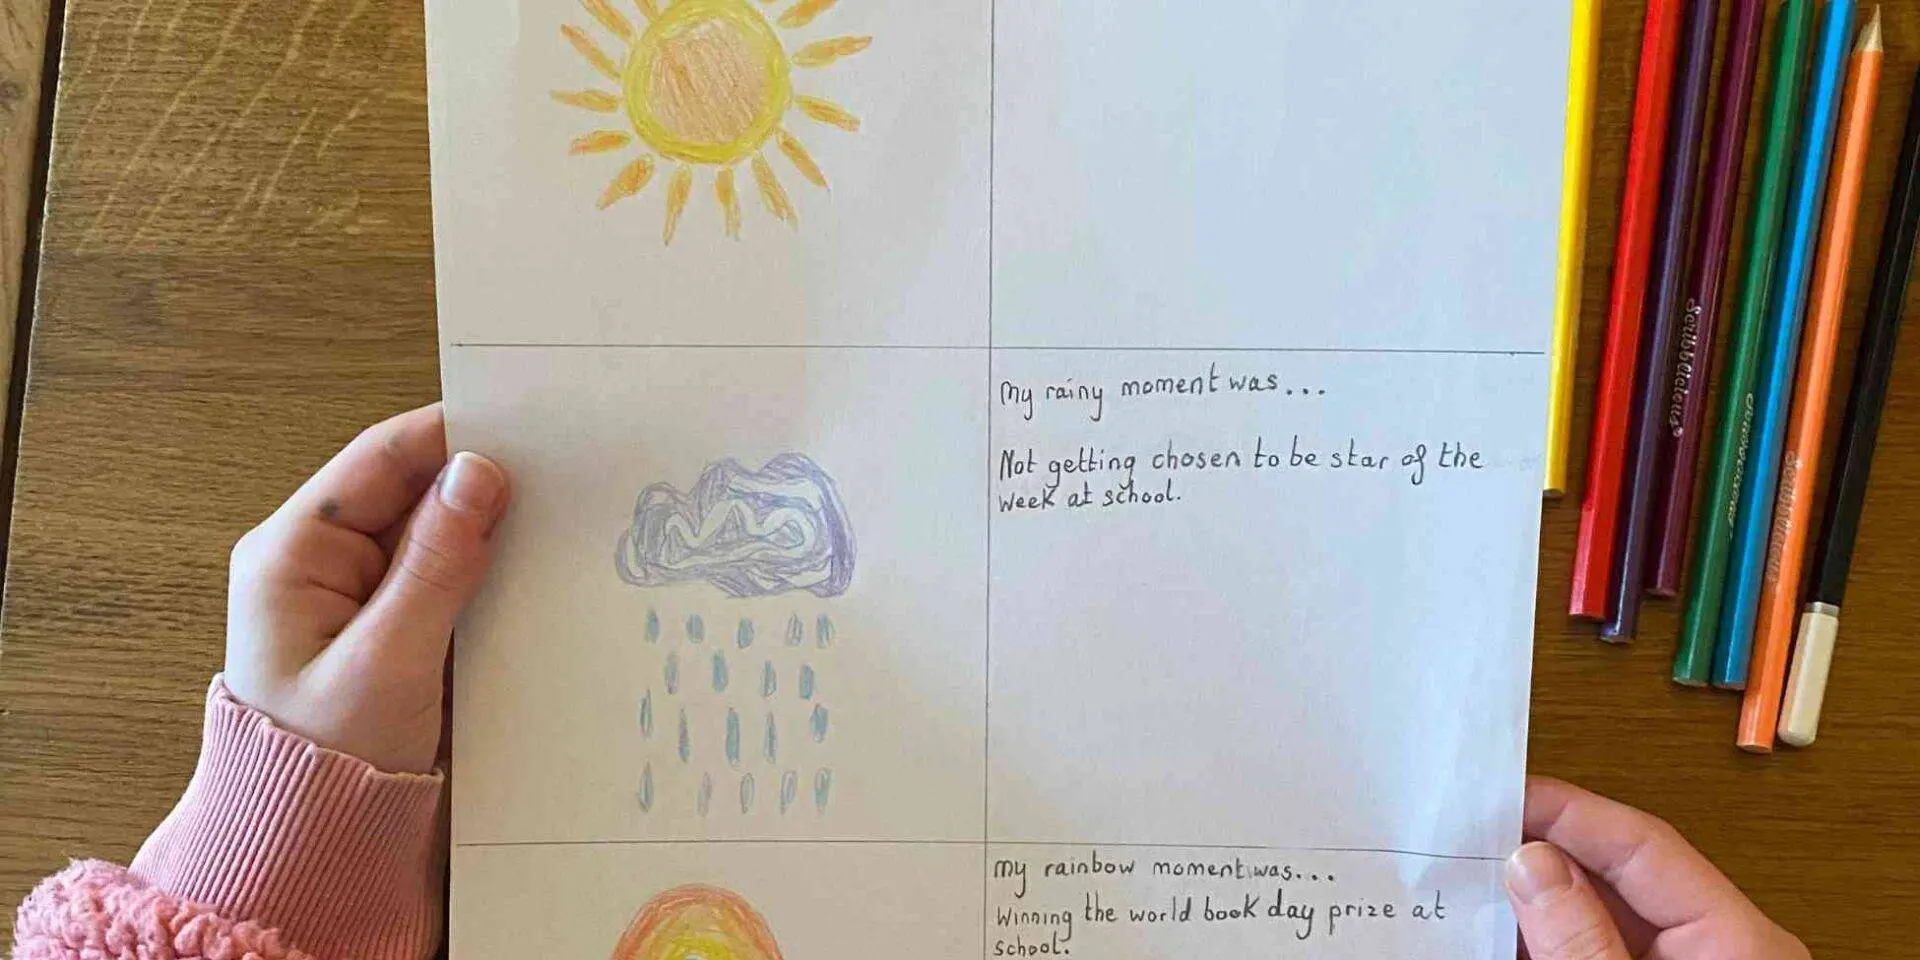 My rainy moment was...
Not getting chosen to be star of the
week at school.
My rainbow moment was...
Winning the world book day prize at
school.
Scribblicious